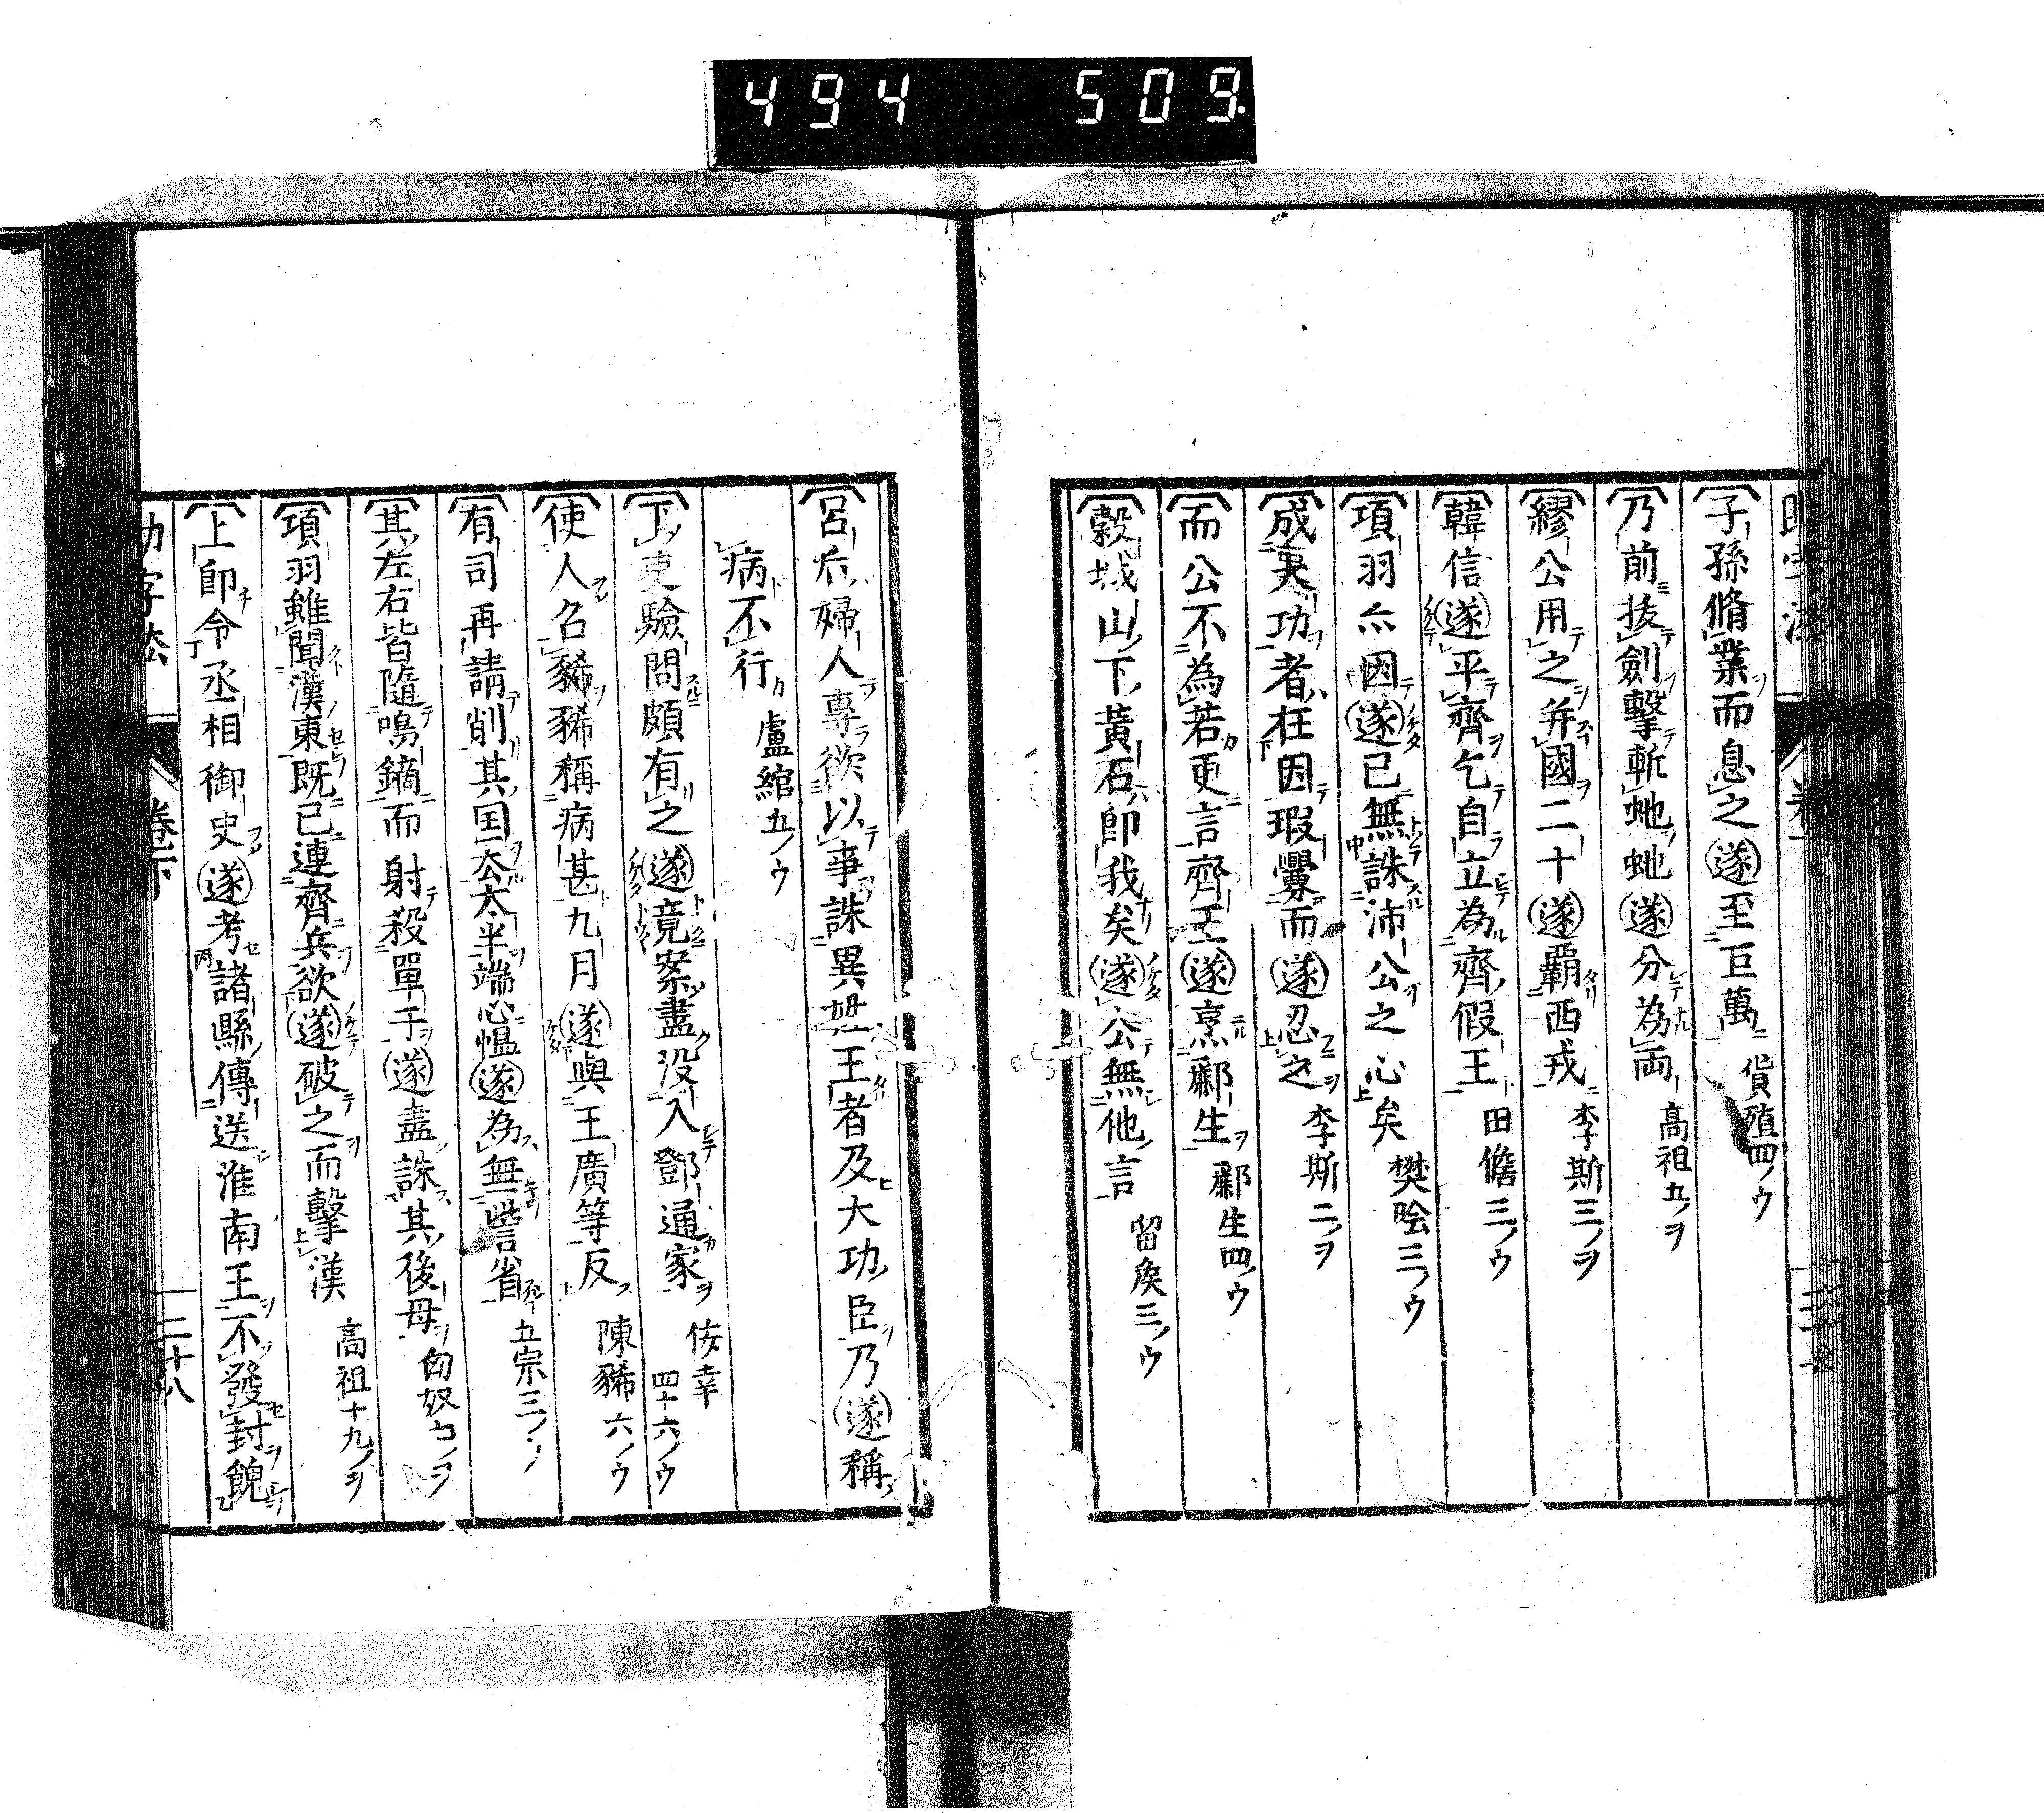 494 509.
子孫脩業而息之遂至巨萬 貨殖四ノウ
乃前抜劍擊斬虵虵遂分為兩 高祖五ノヲ
繆公用之并國二十遂霸西戎 李斯三ノヲ
韓信遂平齊乞自立為齊假王 田儋三ノウ
項羽亦因遂已無誅沛公之心矣 樊噲三ノウ
成大功者在因瑕釁而遂忍之 李斯二ノヲ
而公不為若更言齊王遂烹酈生 酈生四ノウ
穀城山下黃石即我矣遂公無他言 留侯三ノウ
呂后婦人專欲以事誅異姓王者及大功臣乃遂稱
病不行 盧綰五ノウ
下吏驗問頗有之遂竟案盡沒入鄧通家 佞幸四十六ノウ
使人召豨豨稱病甚九月遂與王廣等反 陳豨六ノウ
有司再請削其国去太半端心慍遂為無訾省 五宗三ノ
其左右皆隨鳴鏑而射殺單于遂盡誅其後母 匈奴七ノヲ
項羽雖聞漢東既已連齊兵欲遂破之而擊漢 高祖十九ノヲ
上即令丞相御史遂考諸縣傳送淮南王不發封餽
助字法 卷下 二十八